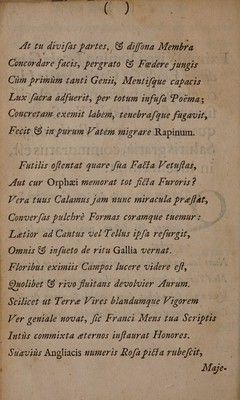 ( )
At tu divisas partes, & dissona Membra
Concordare facis, pergrato & Fœdere jungis
Cùm primùm tanti Genii, Mentisque capacis
Lux sacra adfuerit, per totum infusa Poëma;
Concretam exemit labem, tenebrasque fugavit,
Fecit & in purum Vatem migrare Rapinum.
Futilis ostentat quare sua Facta Vetustas,
Aut cur Orphæi memorat tot ficta Furoris?
Vera tuus Calamus jam nunc miracula præstàt,
Conversas pulchrè Formas coramque tuemur:
Lætior ad Cantus vel Tellus ipsa resurgit,
Omnis & insueto de ritu Gallia vernat.
Floribus eximiis Campos lucere videre est,
Quolibet & rivo fluitans devolvier Aurum.
Scilicet ut Terræ Vires blandumque Vigorem
Ver geniale novat, sic Franci Mens tua Scriptis
Intùs commixta æternos instaurat Honores.
Suaviùs Angliacis numeris Rosa picta rubescit,
Maje-